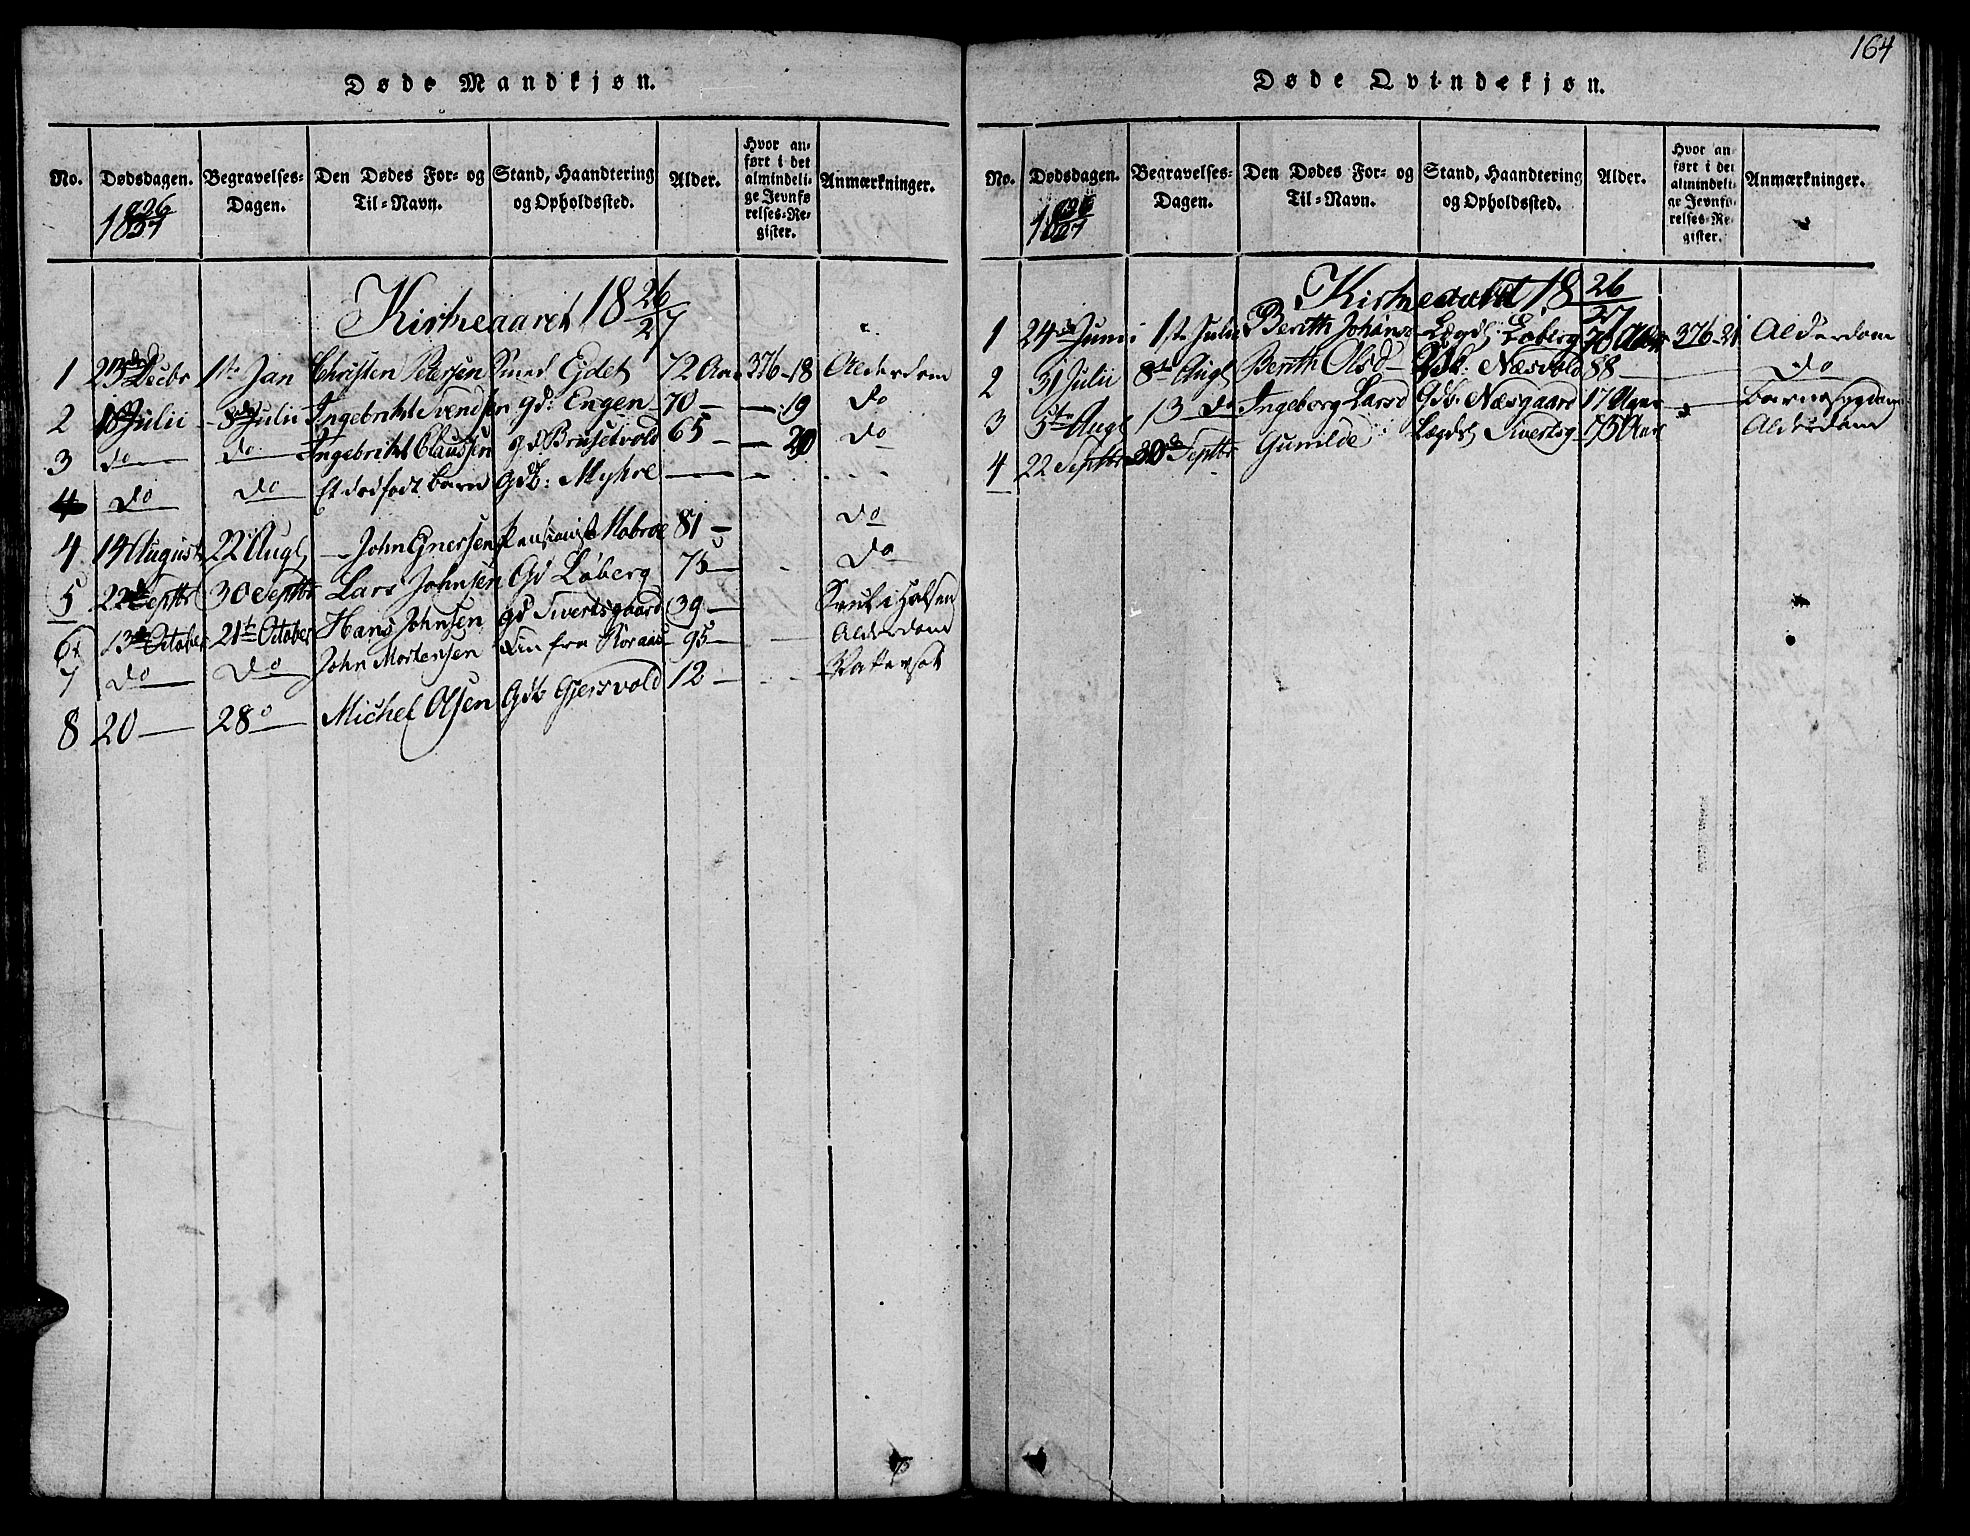 164
Døde Mandkjøn.
No. | Dødsdagen. 1826/27 | Begravelses-Dagen. | Den Dødes For- og Til-Navn. | Stand, Haandtering og Opholdssted. | Alder. | Hvor anført i det almindelige Jevnførelses-Register. | Anmærkninger.
Kirkeaaret 1826/27
1 | 23de Decbr | 1ste Jan | Christen Petersen | Smed Eydet | 72 Aar | 376-18 | Alderdom
2 | Julii | Julii | Ingebricht Svendsen | Gd: Engen | 70 — | — 19 | do
3 | do | do | Ingebricht Claussen | Gd Brusetvold | 65 — | — 20 | do
4 | do | do | Et dødfødt barn | Gdb: Myhre | — | —
4 | 14 August | 22 Augt | John Enersen | Pensionist Mobroe | 81 — | | do
5 | 22de Septbr | 30 Septbr | Lars Johnsen | Gd Løberg | 75 — | | do
6 | 13de October | 21de October | Hans Johnsen | Gd Sivertsgaard | 39 — | | i Halsen
7 | do | do | John Mortensen | fra Koraas | 95 — | | Alderdom
8 | 20 — | 28 — | Michel Olsen | Gdb Gjersvold | 12 —
Døde Qvindekjøn.
No. | Dødsdagen. 1826/27 | Begravelses-Dagen. | Den Dødes For- og Til-Navn. | Stand, Haandtering og Opholdssted. | Alder. | Hvor anført i det almindelige Jevnførelses-Register. | Anmærkninger.
Kirkeaaret 1826/27
1 | 24de Junii | 1ste Julii | Berith Johnsd | Lægdl Løberg | 70 Aar | 376-21 | Alderdom
2 | 31 Julii | 8de Augt | Berith Olsd | Gdk: Næsvold | 88 — | | do
3 | 5te Augt | 13 do | Ingeborg Larsd | Gdb. Næsgaard | 17 Uger
4 | 22 Septbr | 30de Septbr | Gunilde | Lægdsl Sivertsg | 75 Aar | | Alderdom